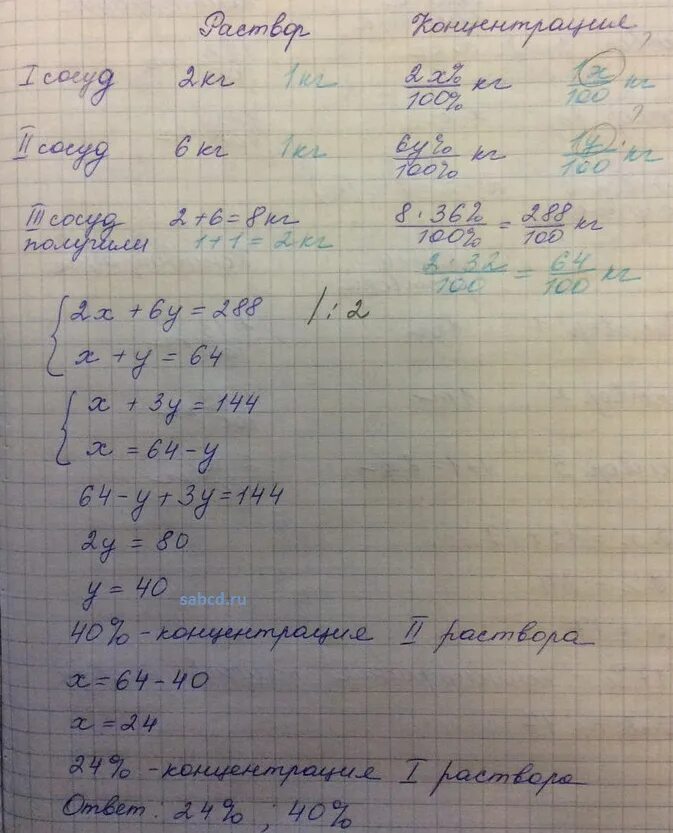 Раствор Концентрация
I сосуд 2кг 1кг 2x%/100% кг 1x/100 кг
?
II сосуд 6кг 1кг 6y%/100% кг 1y/100 кг
III сосуд 2+6=8кг 8·36%/100% = 288/100 кг
получили 1+1=2кг 2·32/100 = 64/100 кг
2x+6y=288 /:2
x+y=64
x+3y=144
x=64-y
64-y+3y=144
2y=80
y=40
sabcd.ru
40%-концентрация II раствора
x=64-40
x=24
24%-концентрация I раствора
Ответ: 24%; 40%